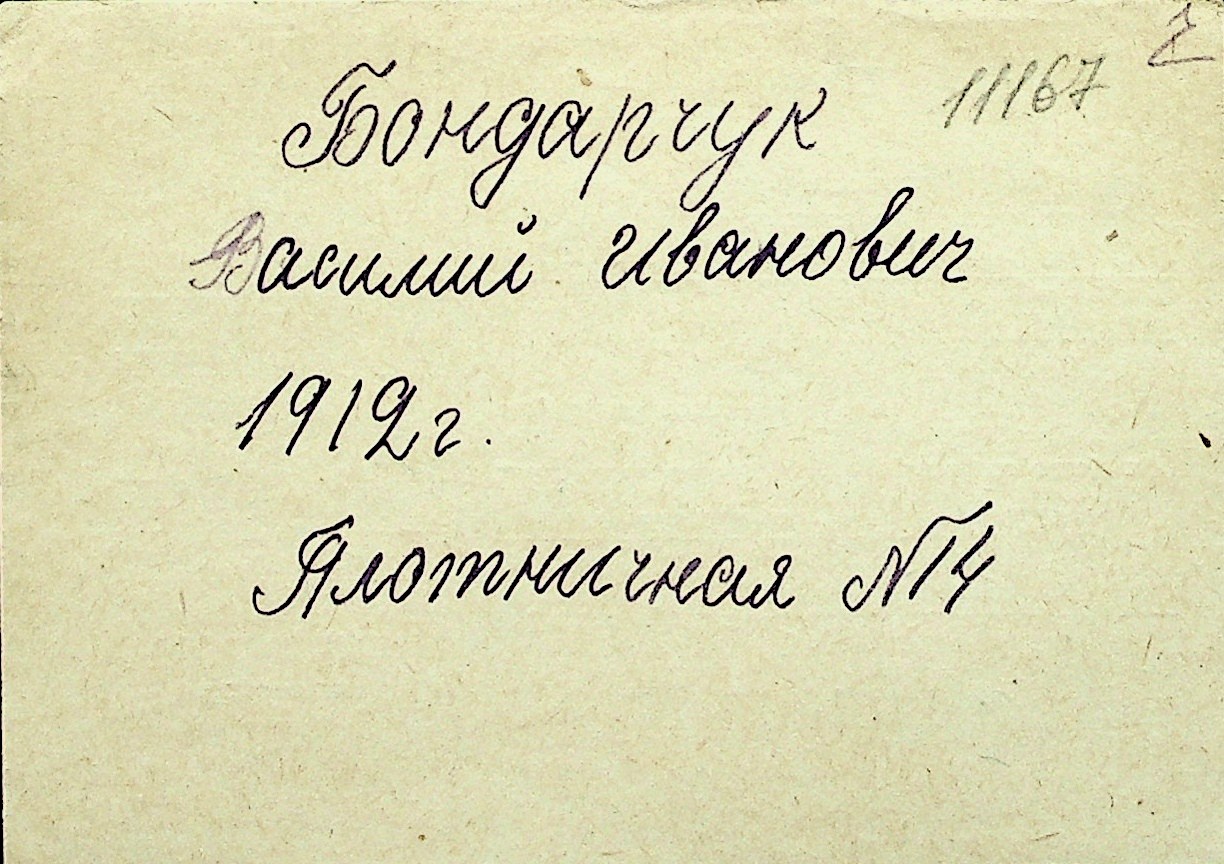 11167 2
Бондарчук
Василий Иванович
1912 г.
Плотничная №4